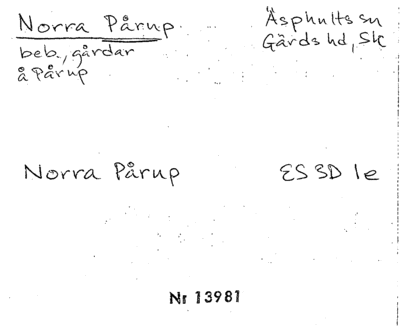 Norra Pårup Äsphults sn
beb., gårdar Gärds hd, Sk
å Pårup
Norra Pårup ES 3D 1e
Nr 13981